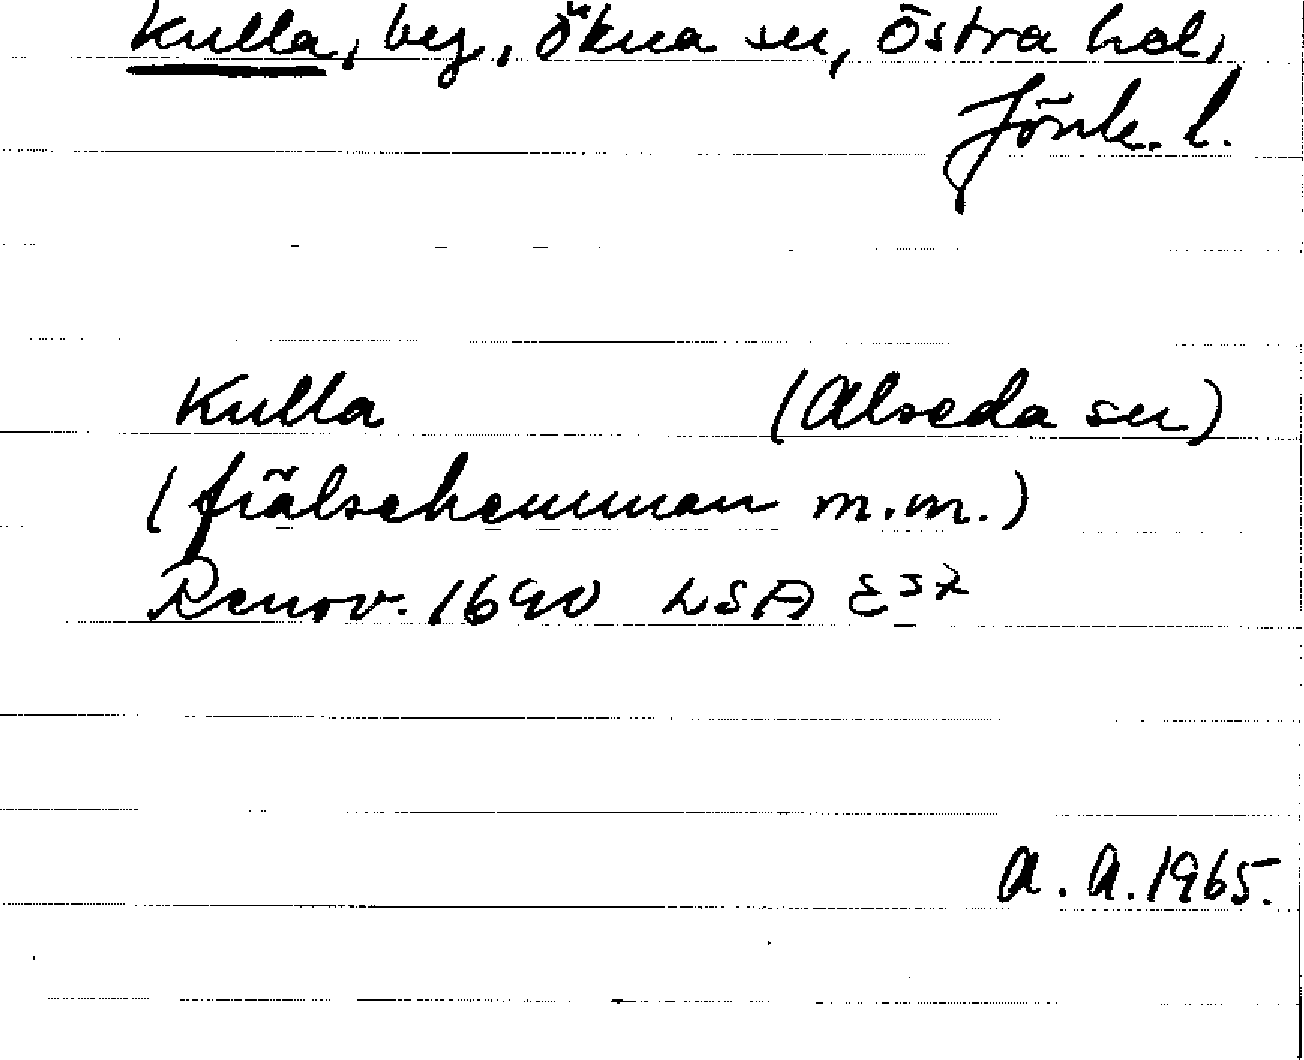 Kulla, by, Ökna sn, Östra hd,
Jönk. l.
Kulla (Alseda sn)
(frälsehemman m.m.)
Renov. 1690 LSA E 37
A. A. 1965.